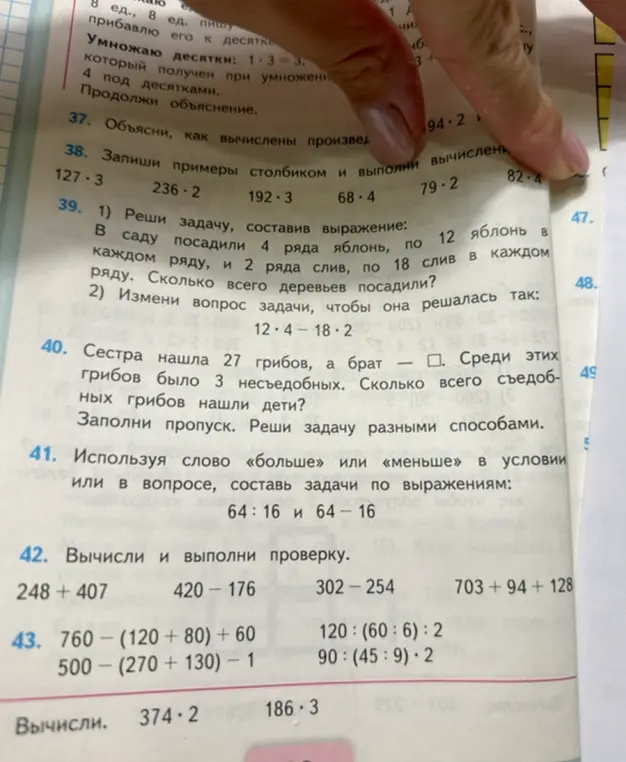 8 ед., 8 ед.
прибавлю его к
Умножаю десятки: 1 · 3 = 3.
который получен при
4 под десятками.
Продолжи объяснение.
37. Объясни, как вычислены 194 · 2
38. Запиши примеры столбиком и выполни
127 · 3 236 · 2 192 · 3 68 · 4 79 · 2 82 · 4
39. 1) Реши задачу, составив выражение:
В саду посадили 4 ряда яблонь, по 12 яблонь в
каждом ряду, и 2 ряда слив, по 18 слив в каждом
ряду. Сколько всего деревьев посадили?
2) Измени вопрос задачи, чтобы она решалась так:
12 · 4 − 18 · 2
40. Сестра нашла 27 грибов, а брат — □. Среди этих
грибов было 3 несъедобных. Сколько всего съедоб-
ных грибов нашли дети?
Заполни пропуск. Реши задачу разными способами.
41. Используя слово «больше» или «меньше» в условии
или в вопросе, составь задачи по выражениям:
64 : 16 и 64 − 16
42. Вычисли и выполни проверку.
248 + 407 420 − 176 302 − 254 703 + 94 + 128
43. 760 − (120 + 80) + 60 120 : (60 : 6) : 2
500 − (270 + 130) − 1 90 : (45 : 9) · 2
Вычисли. 374 · 2 186 · 3
47.
48.
49